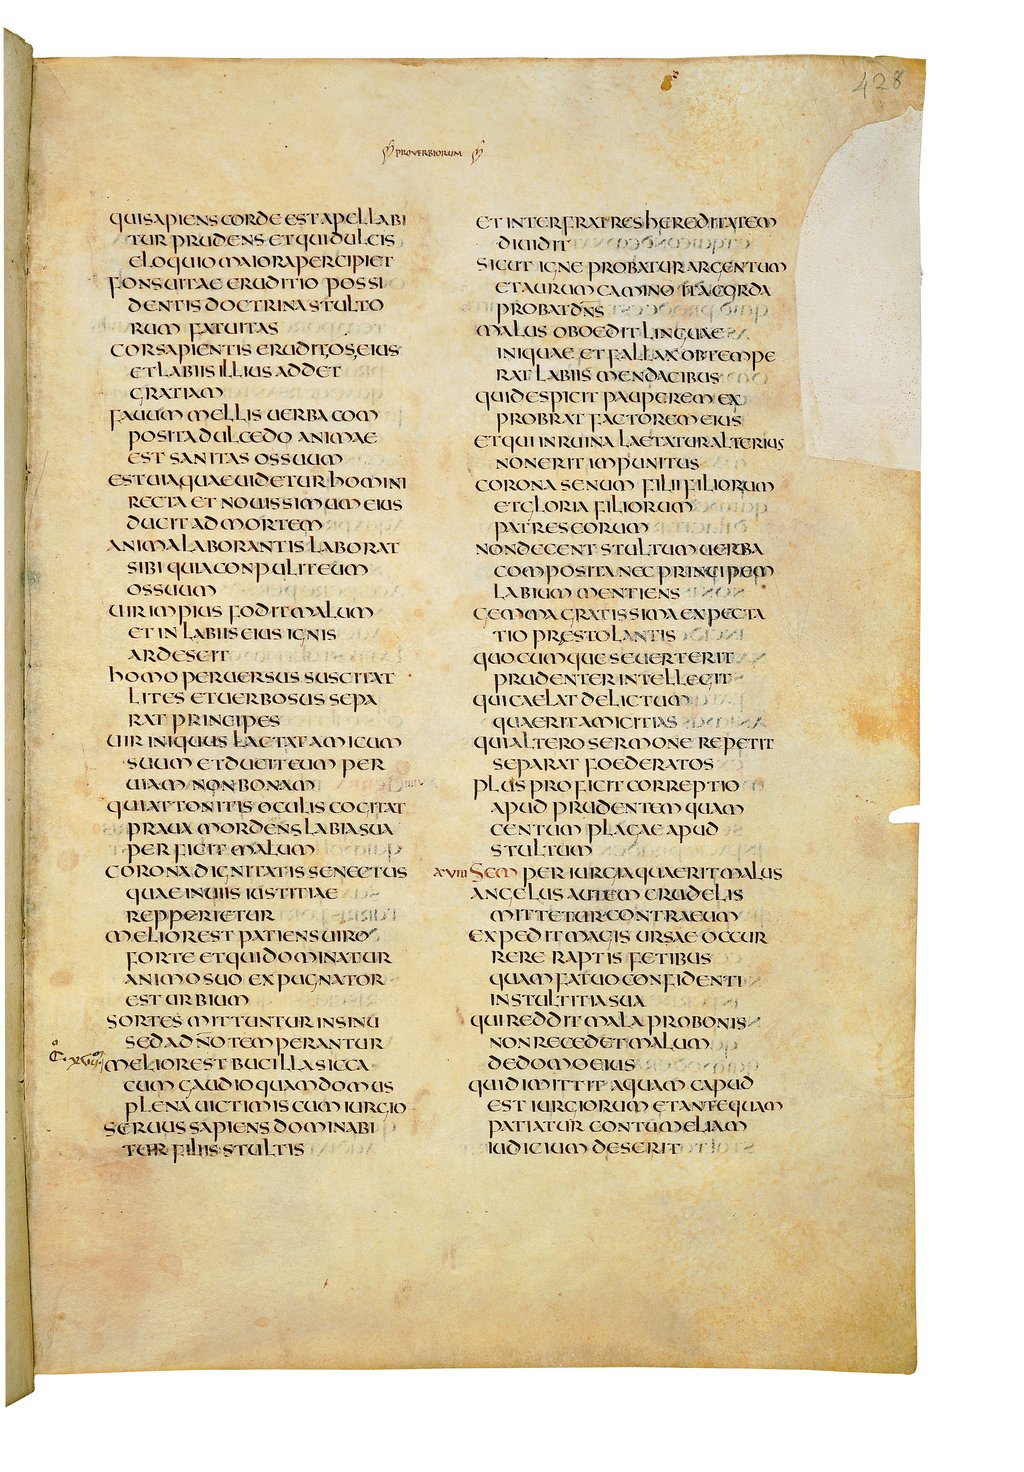 428
PROVERBIORUM
QUISAPIENS CORDE EST APELLABI
TUR PRUDENS ET QUI DULCIS
ELOQUIO MAIORA PERCIPIET
FONS UITAE ERUDITIO POSSI
DENTIS DOCTRINA STULTO
RUM FATUITAS
COR SAPIENTIS ERUDIT OS EIUS
ET LABIIS ILLIUS ADDET
GRATIAM
FAUUM MELLIS UERBA COM
POSITA DULCEDO ANIMAE
EST SANITAS OSSUUM
EST UIA QUAE UIDETUR HOMINI
RECTA ET NOUISSIMUM EIUS
DUCIT AD MORTEM
ANIMA LABORANTIS LABORAT
SIBI QUIA CONPULIT EUM
OS SUUM
UIR IMPIUS FODIT MALUM
ET IN LABIIS EIUS IGNIS
ARDESCIT
HOMO PERUERSUS SUSCITAT
LITES ET UERBOSUS SEPA
RAT PRINCIPES
UIR INIQUUS LAETAT AMICUM
SUUM ET DUCIT EUM PER
UIAM NON BONAM
QUI ATTONITIS OCULIS COGITAT
PRAUA MORDENS LABIA SUA
PERFICIT MALUM
CORONA DIGNITATIS SENECTUS
QUAE IN UIIS IUSTITIAE
REPPERIETUR
MELIOR EST PATIENS UIRO
FORTE ET QUI DOMINATUR
ANIMO SUO EXPUGNATOR
EST URBIUM
SORTES MITTUNTUR IN SINU
SED A DÑO TEMPERANTUR
MELIOR EST BUCILLA SICCA
CUM GAUDIO QUAM DOMUS
PLENA UICTIMIS CUM IURGIO
SERUUS SAPIENS DOMINABI
TUR FILIIS STULTIS
ET INTER FRATRES HEREDITATEM
DIUIDIT
SICUT IGNE PROBATUR ARGENTUM
ET AURUM CAMINO ITA CORDA
PROBAT DÑS
MALUS OBOEDIT LINGUAE
INIQUAE ET FALLAX OBTEMPE
RAT LABIIS MENDACIBUS
QUI DESPICIT PAUPEREM EX
PROBRAT FACTOREM EIUS
ET QUI IN RUINA LAETATUR ALTERIUS
NON ERIT IMPUNITUS
CORONA SENUM FILII FILIORUM
ET GLORIA FILIORUM
PATRES EORUM
NON DECENT STULTUM UERBA
COMPOSITA NEC PRINCIPEM
LABIUM MENTIENS
GEMMA GRATISSIMA EXPECTA
TIO PRESTOLANTIS
QUOCUMQUE SE UERTERIT
PRUDENTER INTELLEGIT
QUI CAELAT DELICTUM
QUAERIT AMICITIAS
QUI ALTERO SERMONE REPETIT
SEPARAT FOEDERATOS
PLUS PROFICIT CORREPTIO
APUD PRUDENTEM QUAM
CENTUM PLAGAE APUD
STULTUM
XVIII SEMPER IURGIA QUAERIT MALUS
ANGELUS AUTEM CRUDELIS
MITTETUR CONTRA EUM
EXPEDIT MAGIS URSAE OCCUR
RERE RAPTIS FETIBUS
QUAM FATUO CONFIDENTI
IN STULTITIA SUA
QUI REDDIT MALA PRO BONIS
NON RECEDET MALUM
DE DOMO EIUS
QUI DIMITTIT AQUAM CAPUD
EST IURGIORUM ET ANTEQUAM
PATIATUR CONTUMELIAM
IUDICIUM DESERIT